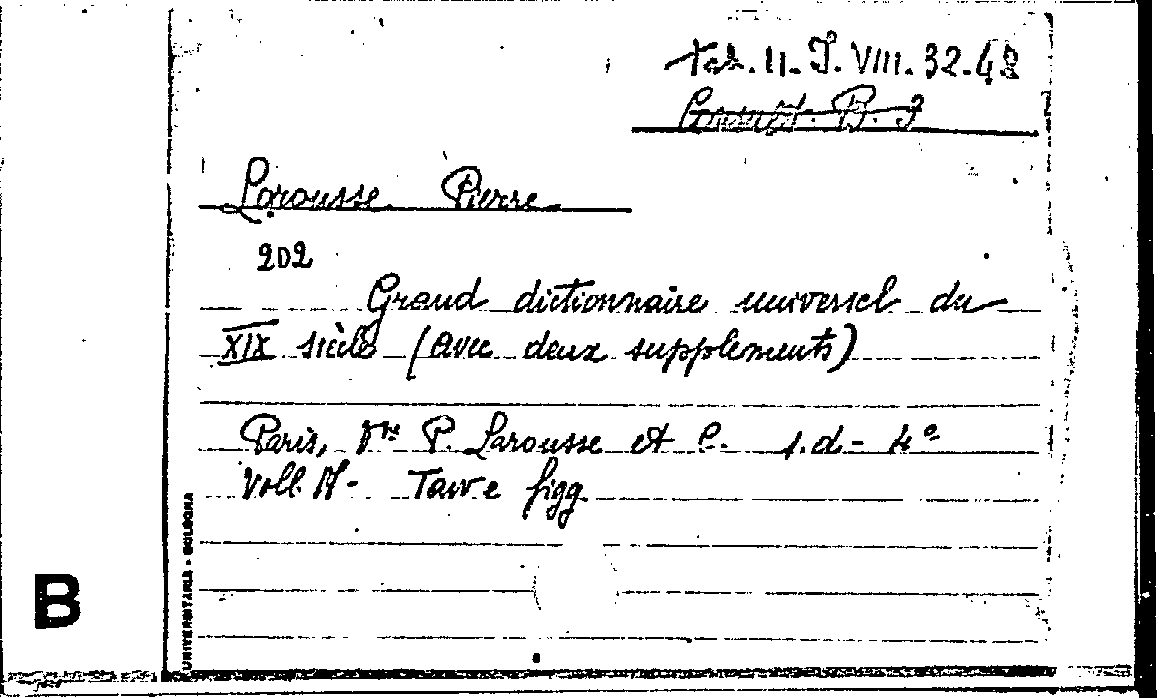 Tab. II. J. VIII. 32-48
Consult. B. 9
Larousse Pierre
202
Grand dictionnaire universel du
XIX siècle (avec deux supplements)
Paris, Vve P. Larousse et C. s.d - 4°
Voll. - Tavv e figg.
UNIVERSITARIA - BOLOGNA
B